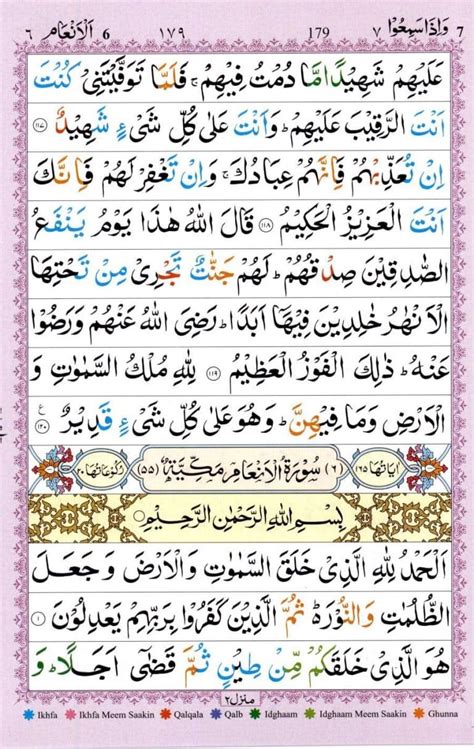 7 وَاِذَا سَمِعُوْا ٧ 179 ١٧٩ 6 اَلْاَنْعَام ٦
عَلَيْهِمْ شَهِيْدًا مَّا دُمْتُ فِيْهِمْ ۚ فَلَمَّا تَوَفَّيْتَنِىْ كُنْتَ
اَنْتَ الرَّقِيْبَ عَلَيْهِمْ ؕ وَاَنْتَ عَلٰى كُلِّ شَىْءٍ شَهِيْدٌ ١١٧
اِنْ تُعَذِّبْهُمْ فَاِنَّهُمْ عِبَادُكَ ۚ وَاِنْ تَغْفِرْ لَهُمْ فَاِنَّكَ
اَنْتَ الْعَزِيْزُ الْحَكِيْمُ ١١٨ قَالَ اللّٰهُ هٰذَا يَوْمُ يَنْفَعُ
الصّٰدِقِيْنَ صِدْقُهُمْ ؕ لَهُمْ جَنّٰتٌ تَجْرِىْ مِنْ تَحْتِهَا
الْاَنْهٰرُ خٰلِدِيْنَ فِيْهَاۤ اَبَدًا ؕ رَضِىَ اللّٰهُ عَنْهُمْ وَرَضُوْا
عَنْهُ ؕ ذٰلِكَ الْفَوْزُ الْعَظِيْمُ ١١٩ لِلّٰهِ مُلْكُ السَّمٰوٰتِ وَ
الْاَرْضِ وَمَا فِيْهِنَّ ؕ وَهُوَ عَلٰى كُلِّ شَىْءٍ قَدِيْرٌ ١٢٠ ع
اٰيَاتُهَا ١٦٥ (٦) سُوْرَةُ الْاَنْعَامِ مَكِّيَّةٌ (٥٥) رُكُوْعَاتُهَا ٢٠
بِسْمِ اللّٰهِ الرَّحْمٰنِ الرَّحِيْمِ
اَلْحَمْدُ لِلّٰهِ الَّذِىْ خَلَقَ السَّمٰوٰتِ وَالْاَرْضَ وَجَعَلَ
الظُّلُمٰتِ وَالنُّوْرَ ؕ ثُمَّ الَّذِيْنَ كَفَرُوْا بِرَبِّهِمْ يَعْدِلُوْنَ ١
هُوَ الَّذِىْ خَلَقَكُمْ مِّنْ طِيْنٍ ثُمَّ قَضٰۤى اَجَلًا ؕ وَ
منزل ٢
Ikhfa Ikhfa Meem Saakin Qalqala Qalb Idghaam Idghaam Meem Saakin Ghunna